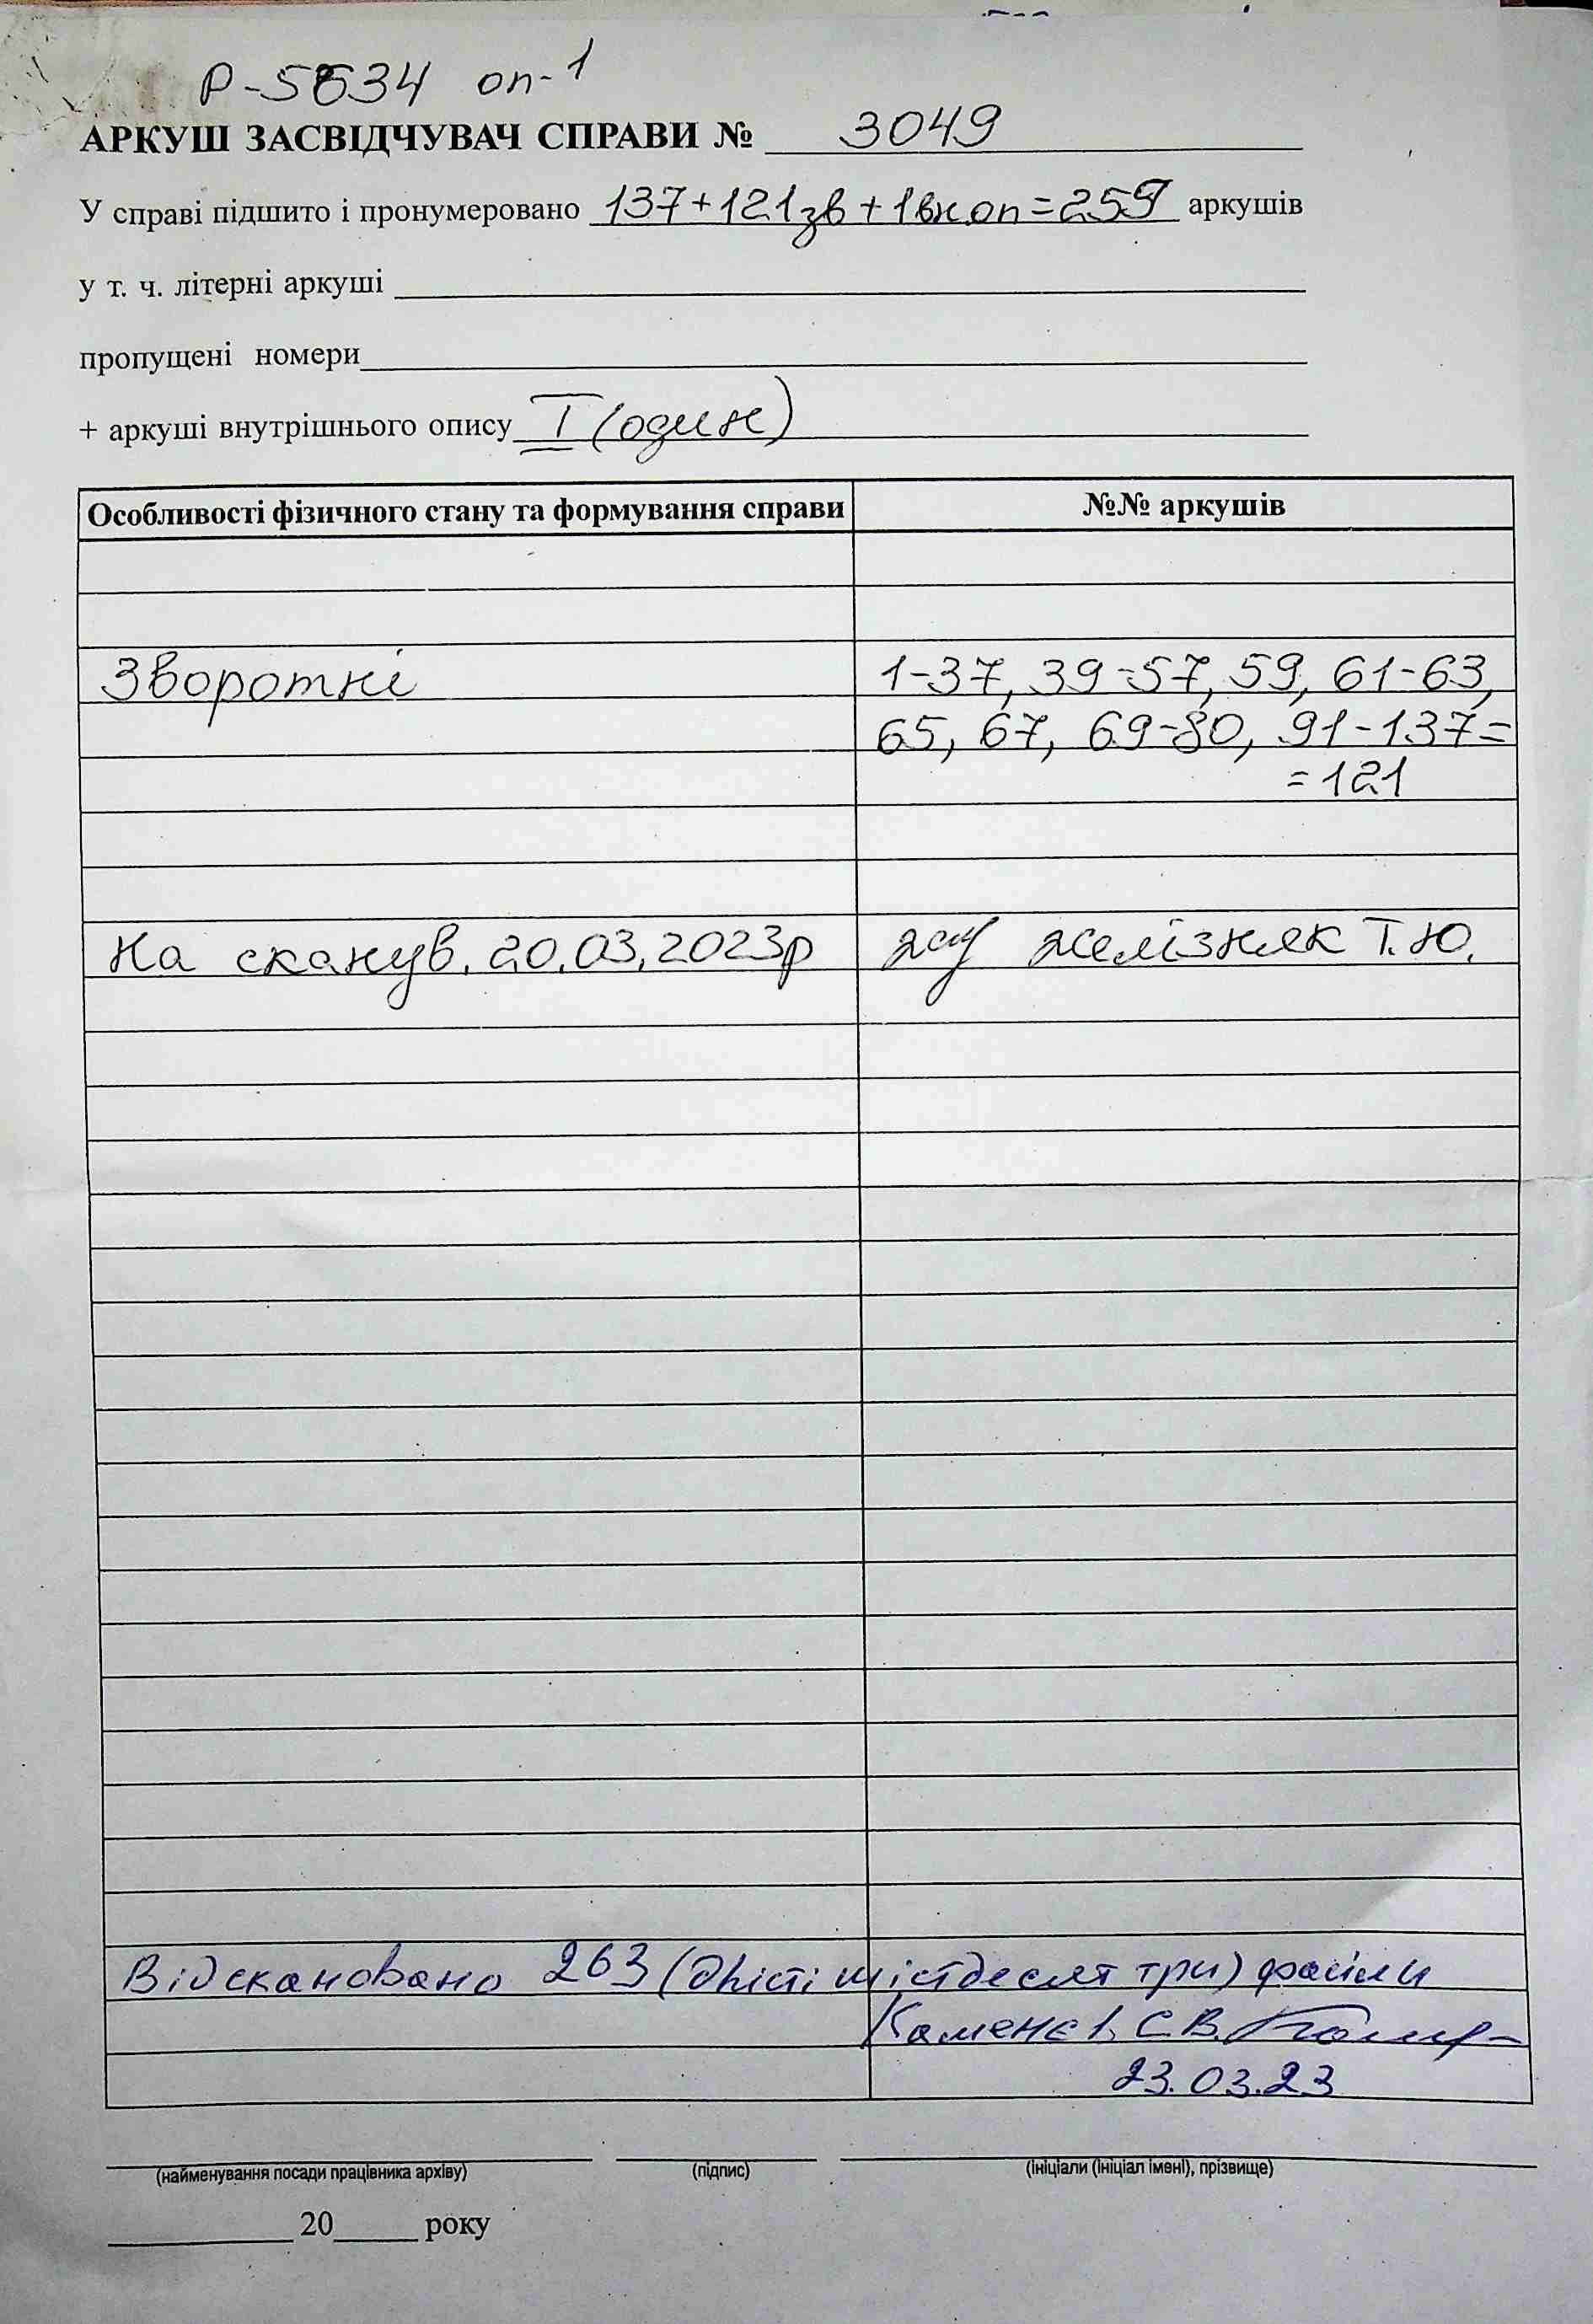 Р-5634 оп-1
АРКУШ ЗАСВІДЧУВАЧ СПРАВИ № 3049
У справі підшито і пронумеровано 137+121зв+1вн.оп=259 аркушів
у т. ч. літерні аркуші
пропущені номери
+ аркуші внутрішнього опису I (один)
Особливості фізичного стану та формування справи №№ аркушів
Зворотні 1-37, 39-57, 59, 61-63,
65, 67, 69-80, 91-137=
=121
На сканув. 20.03.2023р Желізняк Т.Ю.
Відскановано 263 (двісті шістдесят три) файли
Каменєв С.В.
23.03.23
(найменування посади працівника архіву) (підпис) (ініціали (ініціал імені), прізвище)
20 року